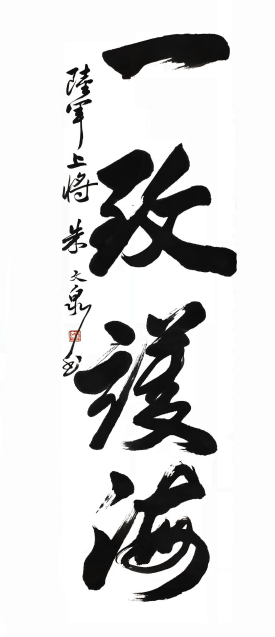 一致護海
陸軍上将 朱文泉 书